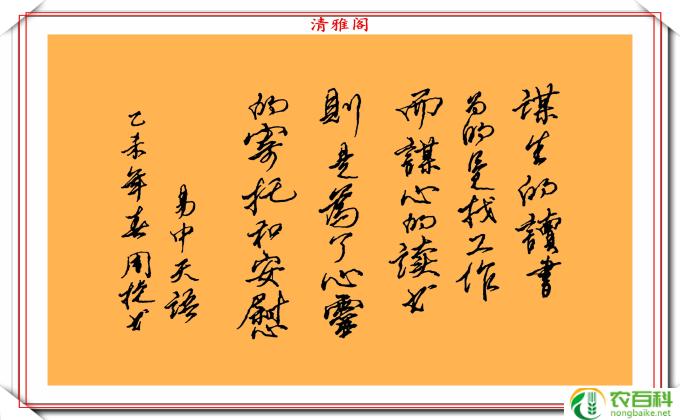 清雅阁
謀生的讀書
为的是找工作
而謀心的读书
則是為了心靈
的寄托和安慰
易中天語
乙未年春周书
农百科
nongbaike.net